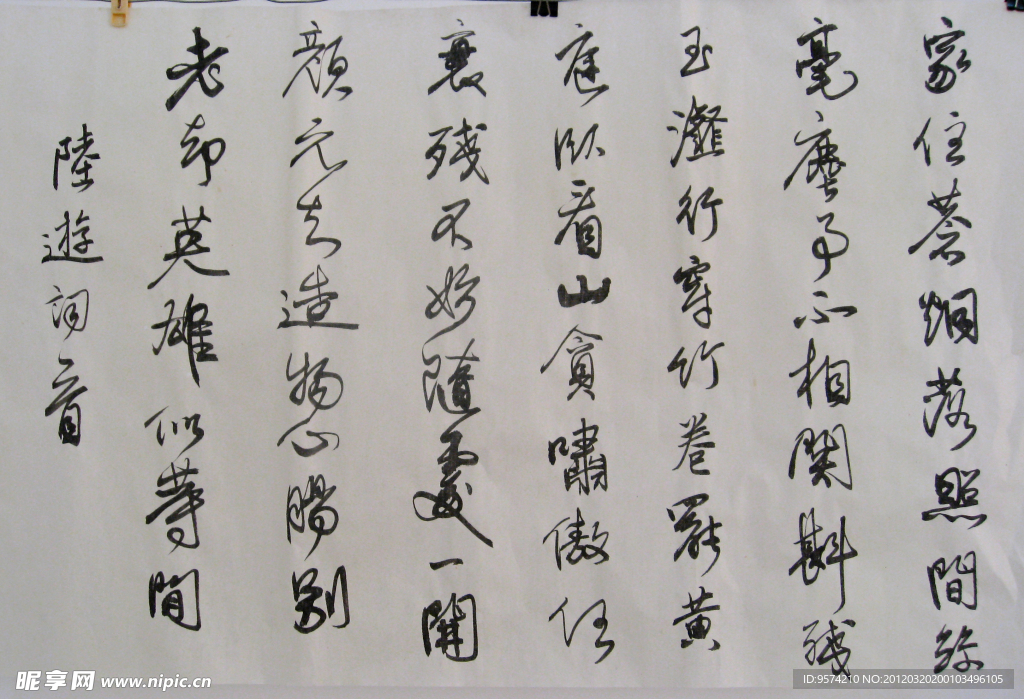 家住蒼烟落照間絲
毫塵事不相關斟残
玉瀣行穿竹卷罷黄
庭臥看山貪嘯傲任
衰残不妨隨處一開
顔元知造物心腸別
老却英雄似等間
陸遊詞一首
昵享网 www.nipic.cn
ID:9574210 NO:20120320200103496105